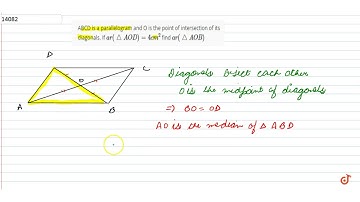 14082
ABCD is a parallelogram and O is the point of intersection of its
diagonals. If ar(△AOD) = 4cm² find ar(△AOB)
D
C
O
A
B
Diagonals bisect each other
O is the midpoint of diagonals
⇒ BO = OD
AO is the median of △ABD
doubtnut